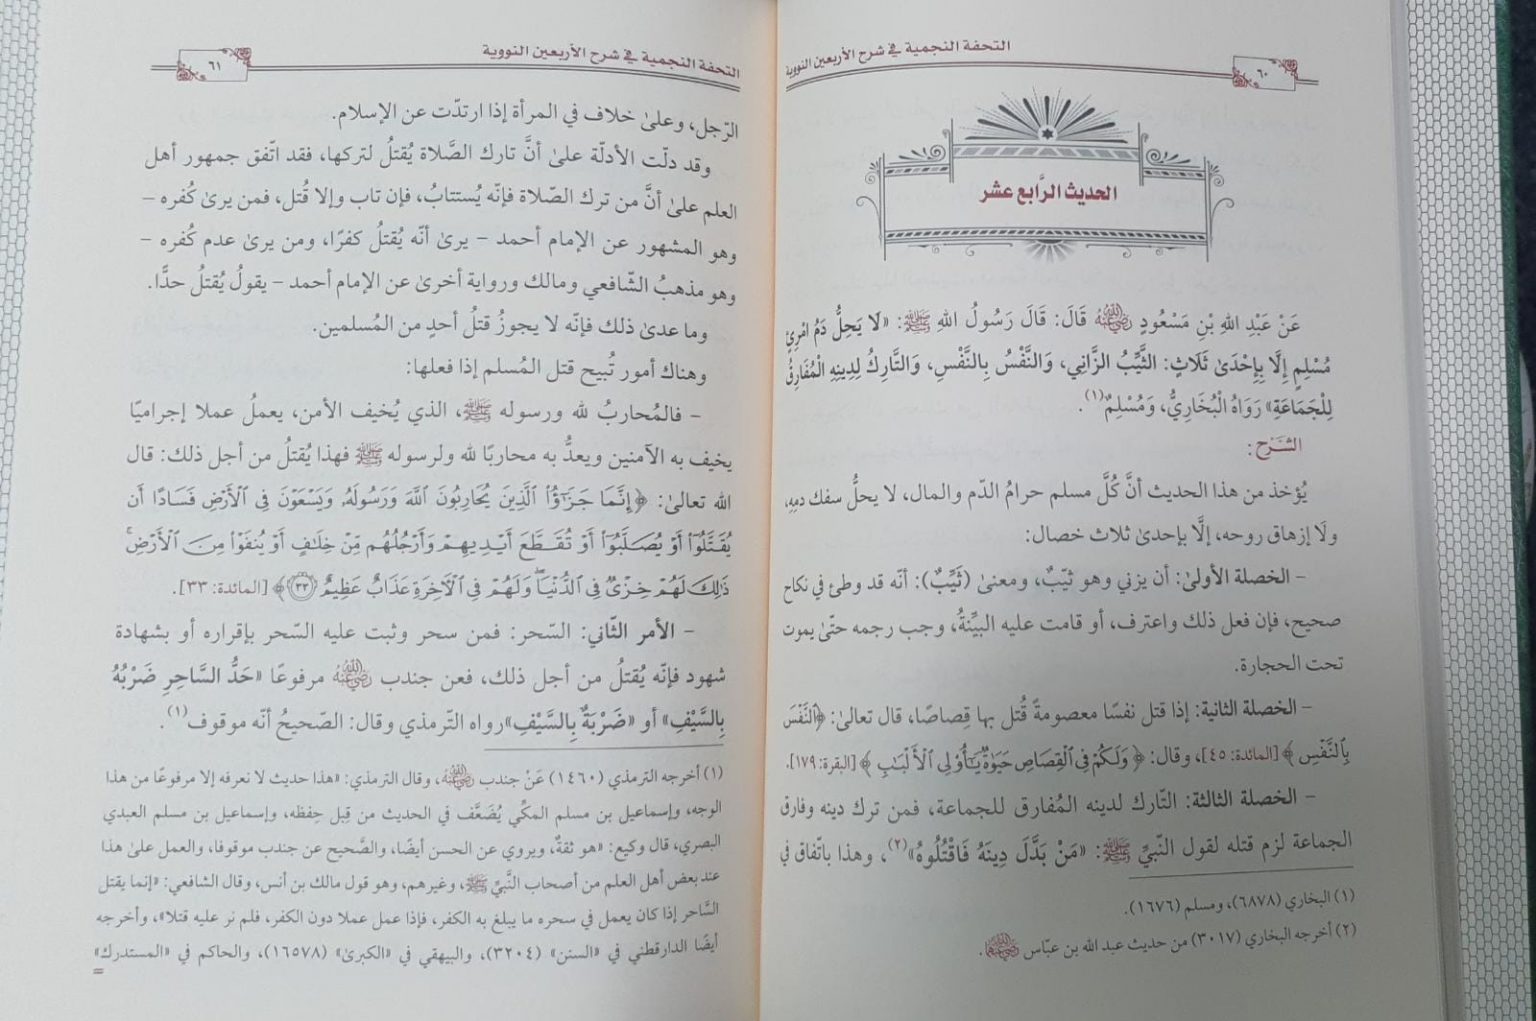 التحفة النجمية في شرح الأربعين النووية
٦٠
الحديث الرَّابع عشر
عَنْ عَبْدِ اللهِ بْنِ مَسْعُودٍ رضي الله عنه قَالَ: قَالَ رَسُولُ اللهِ ﷺ: «لَا يَحِلُّ دَمُ امْرِئٍ
مُسْلِمٍ إِلَّا بِإِحْدَىٰ ثَلَاثٍ: الثَّيِّبُ الزَّانِي، وَالنَّفْسُ بِالنَّفْسِ، وَالتَّارِكُ لِدِينِهِ الْمُفَارِقُ
لِلْجَمَاعَةِ» رَوَاهُ الْبُخَارِيُّ، وَمُسْلِمٌ(١).
الشَّرْح:
يُؤخذ من هذا الحديث أنَّ كُلَّ مسلم حرامُ الدّم والمال، لا يحلُّ سفك دمِهِ،
ولَا إزهاق روحه، إلَّا بإحدىٰ ثلاث خصال:
– الخصلة الأولىٰ: أن يزني وهو ثيّبٌ، ومعنىٰ (ثَيِّبٌ): أنّه قد وطئ في نكاح
صحيح، فإن فعل ذلك واعترف، أو قامت عليه البيِّنةُ، وجب رجمه حتّىٰ يموت
تحت الحجارة.
– الخصلة الثانية: إذا قتل نفسًا معصومةً قُتل بها قِصاصًا، قال تعالىٰ: ﴿ٱلنَّفْسَ
بِٱلنَّفْسِ﴾ [المائدة: ٤٥]، وقال: ﴿وَلَكُمْ فِى ٱلْقِصَاصِ حَيَوٰةٌ يَـٰٓأُو۟لِى ٱلْأَلْبَـٰبِ﴾ [البقرة: ١٧٩].
– الخصلة الثالثة: التّارك لدينه المُفارق للجماعة، فمن ترك دينه وفارق
الجماعة لزم قتله لقول النّبيِّ ﷺ: «مَنْ بَدَّلَ دِينَهُ فَاقْتُلُوهُ»(٢)، وهذا باتّفاق في
(١) البخاري (٦٨٧٨)، ومسلم (١٦٧٦).
(٢) أخرجه البخاري (٣٠١٧) من حديث عبد الله بن عبّاس رضي الله عنهما.
التحفة النجمية في شرح الأربعين النووية
٦١
الرّجل، وعلىٰ خلاف في المرأة إذا ارتدّت عن الإسلام.
وقد دلّت الأدلّة علىٰ أنَّ تارك الصَّلاة يُقتلُ لتركها، فقد اتّفق جمهور أهل
العلم علىٰ أنَّ من ترك الصّلاة فإنّه يُستتابُ، فإن تاب وإلا قُتل، فمن يرىٰ كُفره –
وهو المشهور عن الإمام أحمد – يرىٰ أنّه يُقتلُ كفرًا، ومن يرىٰ عدم كُفره –
وهو مذهبُ الشّافعي ومالك ورواية أخرىٰ عن الإمام أحمد – يقولُ يُقتلُ حدًّا.
وما عدىٰ ذلك فإنّه لا يجوزُ قتلُ أحدٍ من المُسلمين.
وهناك أمور تُبيح قتل المُسلم إذا فعلها:
– فالمُحاربُ لله ورسوله ﷺ، الذي يُخيف الأمن، يعملُ عملا إجراميًا
يخيف به الآمنين ويعدُّ به محاربًا لله ولرسوله ﷺ فهذا يُقتلُ من أجل ذلك: قال
الله تعالىٰ: ﴿إِنَّمَا جَزَٰٓؤُا۟ ٱلَّذِينَ يُحَارِبُونَ ٱللَّهَ وَرَسُولَهُۥ وَيَسْعَوْنَ فِى ٱلْأَرْضِ فَسَادًا أَن
يُقَتَّلُوٓا۟ أَوْ يُصَلَّبُوٓا۟ أَوْ تُقَطَّعَ أَيْدِيهِمْ وَأَرْجُلُهُم مِّنْ خِلَـٰفٍ أَوْ يُنفَوْا۟ مِنَ ٱلْأَرْضِ ۚ
ذَٰلِكَ لَهُمْ خِزْىٌ فِى ٱلدُّنْيَا ۖ وَلَهُمْ فِى ٱلْـَٔاخِرَةِ عَذَابٌ عَظِيمٌ ٣٣﴾ [المائدة: ٣٣].
– الأمر الثّاني: السّحر: فمن سحر وثبت عليه السّحر بإقراره أو بشهادة
شهود فإنّه يُقتلُ من أجل ذلك، فعن جندب رضي الله عنه مرفوعًا «حَدُّ السَّاحِرِ ضَرْبُهُ
بِالسَّيْفِ» أو «ضَرْبَةٌ بِالسَّيْفِ» رواه التّرمذي وقال: الصّحيحُ أنّه موقوف(١).
(١) أخرجه الترمذي (١٤٦٠) عَنْ جندب رضي الله عنه، وقال الترمذي: «هذا حديث لا نعرفه إلا مرفوعًا من هذا
الوجه، وإسماعيل بن مسلم المكّي يُضَعَّف في الحديث من قِبل حِفظه، وإسماعيل بن مسلم العبدي
البصري، قال وكيع: «هو ثقةٌ، ويروي عن الحسن أيضًا، والصَّحيح عن جندب موقوفا، والعمل علىٰ هذا
عند بعض أهل العلم من أصحاب النَّبيِّ ﷺ، وغيرهم، وهو قول مالك بن أنس، وقال الشافعي: «إنما يقتل
السَّاحر إذا كان يعمل في سحره ما يبلغ به الكفر، فإذا عمل عملا دون الكفر، فلم نر عليه قتلا»، وأخرجه
أيضًا الدارقطني في «السنن» (٣٢٠٤)، والبيهقي في «الكبرىٰ» (١٦٥٧٨)، والحاكم في «المستدرك»
=